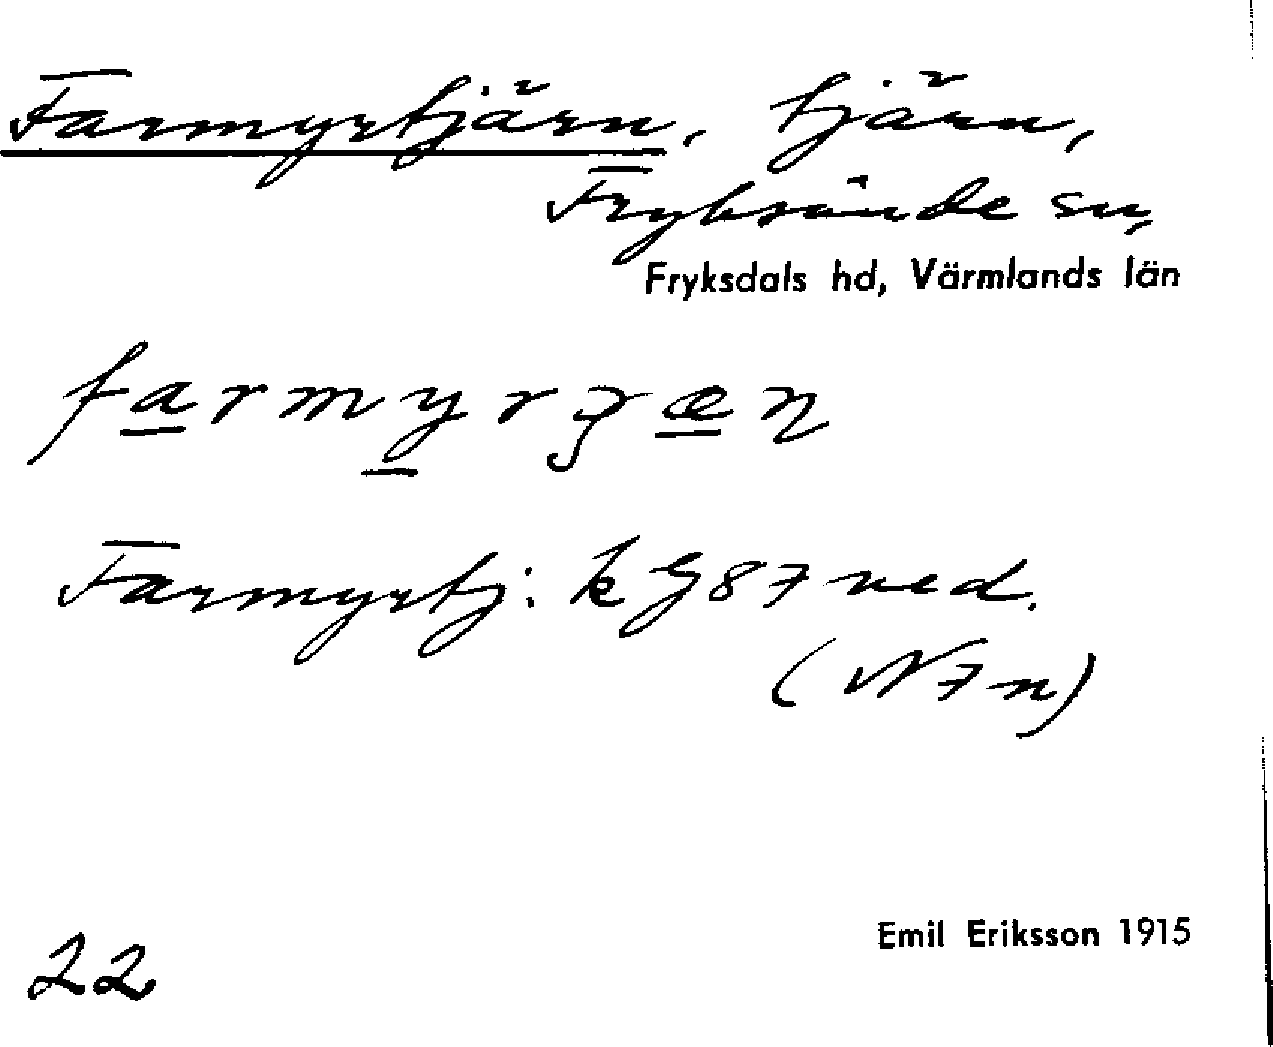 Farmyrtjärn, tjärn,
Fryksände sn,
Fryksdals hd, Värmlands län
farmyrʒæɳ
Farmyrtj: k G 87 ned.
(N 7 n)
Emil Eriksson 1915
22